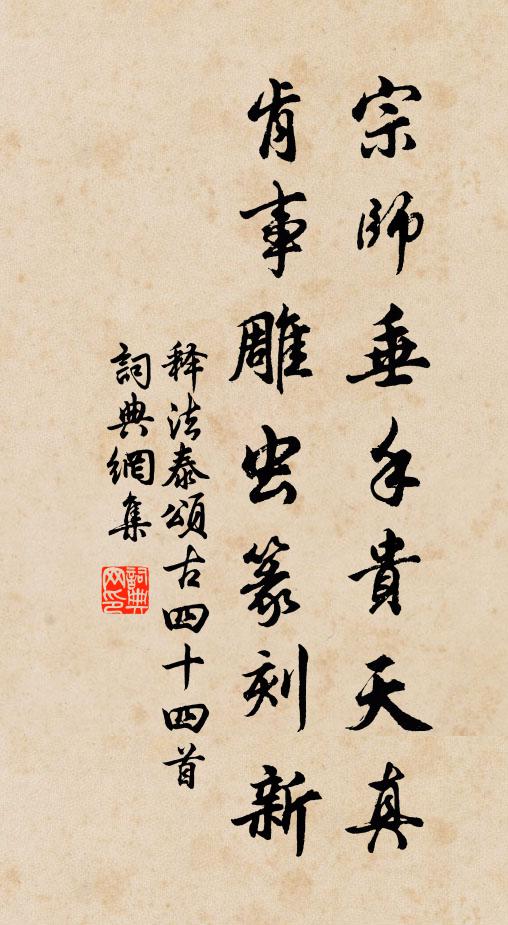 宗師垂手貴天真
肯事雕虫篆刻新
释法泰頌古四十四首
詞典網集
詞典网印